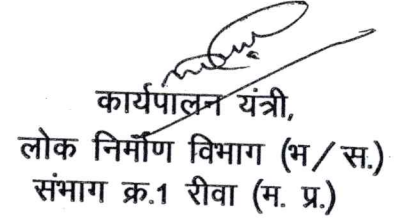 कार्यपालन यंत्री,
लोक निर्माण विभाग (भ/स.)
संभाग क्र.1 रीवा (म. प्र.)